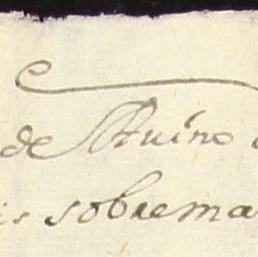 de Ruíno
is sobrema